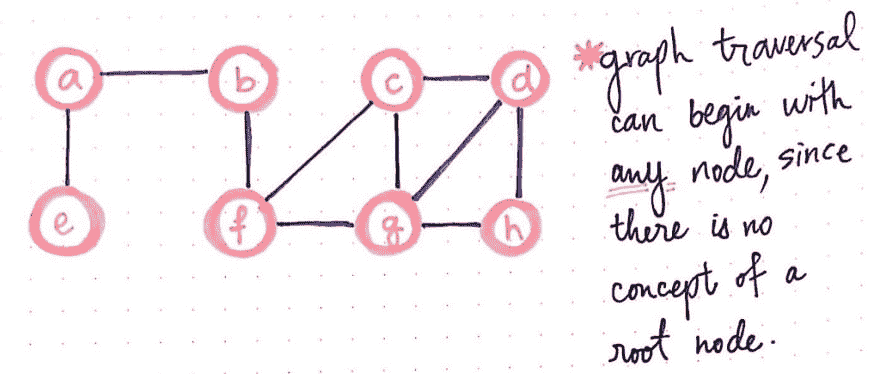 a
b
c
d
e
f
g
h
*graph traversal
can begin with
any node, since
there is no
concept of a
root node.